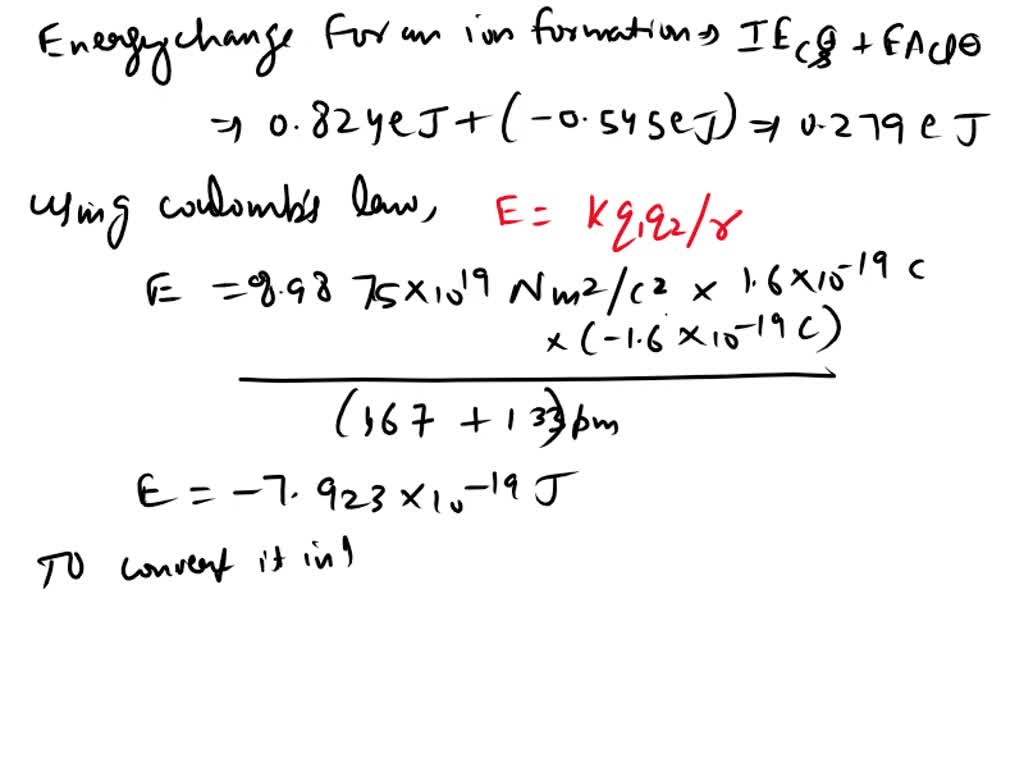 Energychange For an ion formation → IE Cs + EA Cl⊖
⇒ 0.824eJ + (-0.545eJ) ⇒ 0.279eJ
using coulomb's law, E = Kq₁q₂/r
E = 8.9875×10¹⁹ Nm²/C² × 1.6×10⁻¹⁹ C
× (-1.6×10⁻¹⁹ C)
(167 + 133) pm
E = -7.923×10⁻¹⁹ J
TO convert it in